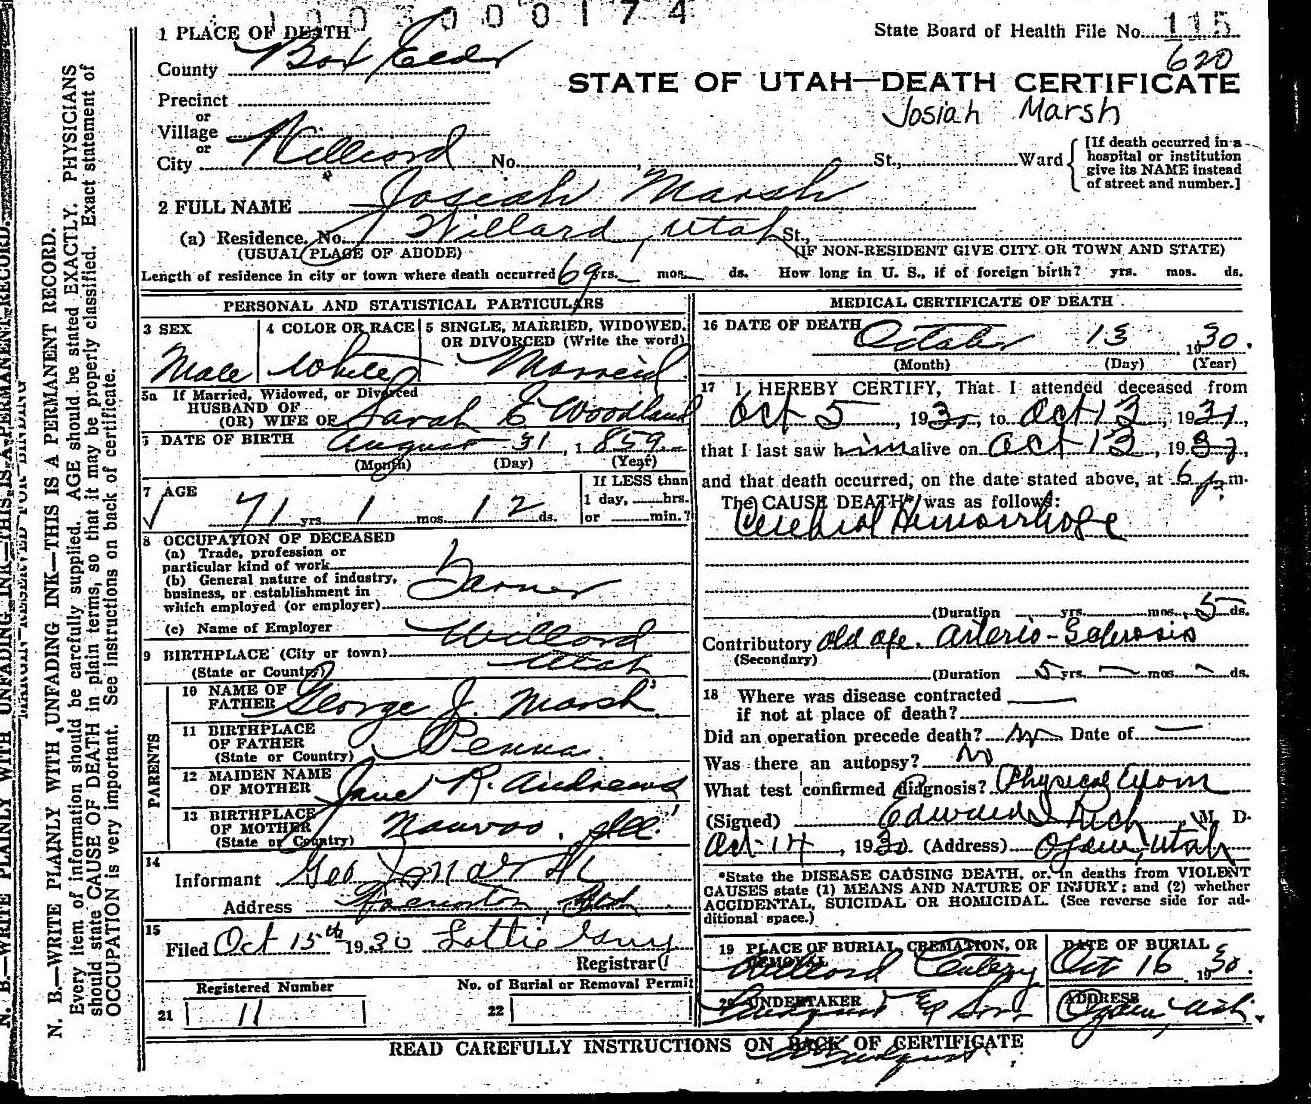 1003000174
1 PLACE OF DEATH
State Board of Health File No. 115
620
County Box Elder
STATE OF UTAH—DEATH CERTIFICATE
Josiah Marsh
Precinct
or
Village
or
City Willard No. , St., Ward
[If death occurred in a hospital or institution give its NAME instead of street and number.]
2 FULL NAME Josiah Marsh
(a) Residence. No. Willard, Utah St.,
(USUAL PLACE OF ABODE) (IF NON-RESIDENT GIVE CITY OR TOWN AND STATE)
Length of residence in city or town where death occurred 69 yrs. — mos. — ds. How long in U. S., if of foreign birth? yrs. mos. ds.
PERSONAL AND STATISTICAL PARTICULARS
3 SEX
Male
4 COLOR OR RACE
White
5 SINGLE, MARRIED, WIDOWED.
OR DIVORCED (Write the word)
Married
5a If Married, Widowed, or Divorced
HUSBAND OF
(OR) WIFE OF Sarah E Woodland
6 DATE OF BIRTH August 31, 1859
(Month) (Day) (Year)
7 AGE
71 yrs. 1 mos. 12 ds.
If LESS than
1 day, hrs.
or min.?
8 OCCUPATION OF DECEASED
(a) Trade, profession or
particular kind of work
(b) General nature of industry,
business, or establishment in
which employed (or employer)
Farmer
(c) Name of Employer
9 BIRTHPLACE (City or town) Willard
(State or Country) Utah
PARENTS
10 NAME OF
FATHER George J. Marsh
11 BIRTHPLACE
OF FATHER
(State or Country) Penna.
12 MAIDEN NAME
OF MOTHER Jane R. Andrews
13 BIRTHPLACE
OF MOTHER
(State or Country) Nauvoo. Ill.
14
Informant Geo
Address
15
Filed Oct 15th 1930 Lottie
Registrar
Registered Number
21 11
No. of Burial or Removal Permit
22
MEDICAL CERTIFICATE OF DEATH
16 DATE OF DEATH October 13 1930.
(Month) (Day) (Year)
17 I HEREBY CERTIFY, That I attended deceased from
Oct 5, 1930, to Oct 13, 1930,
that I last saw him alive on Oct 13, 1930,
and that death occurred, on the date stated above, at 6 p.m.
The CAUSE DEATH* was as follows:
Cerebral Hemorrhage
(Duration yrs. mos. 5 ds.
Contributory old age. Arterio-Sclerosis
(Secondary)
(Duration 5 yrs. — mos. — ds.
18 Where was disease contracted —
if not at place of death?
Did an operation precede death? No Date of —
Was there an autopsy? No
What test confirmed diagnosis? Physical Exam
(Signed) Edward I Rich, M. D.
Oct-14, 1930 (Address) Ogden, Utah
*State the DISEASE CAUSING DEATH, or in deaths from VIOLENT
CAUSES state (1) MEANS AND NATURE OF INJURY; and (2) whether
ACCIDENTAL, SUICIDAL OR HOMICIDAL. (See reverse side for ad-
ditional space.)
19 PLACE OF BURIAL, CREMATION, OR
REMOVAL
Willard Cemetery
DATE OF BURIAL
Oct 16 1930.
20 UNDERTAKER
Lindquist & Sons
ADDRESS
Ogden, Utah.
READ CAREFULLY INSTRUCTIONS ON BACK OF CERTIFICATE
N. B.—WRITE PLAINLY WITH UNFADING INK—THIS IS A PERMANENT RECORD.
Every item of information should be carefully supplied. AGE should be stated EXACTLY. PHYSICIANS
should state CAUSE OF DEATH in plain terms, so that it may be properly classified. Exact statement of
OCCUPATION is very important. See instructions on back of certificate.
N. B.—WRITE PLAINLY WITH UNFADING INK—THIS IS A PERMANENT RECORD.
MARGIN RESERVED FOR BINDING